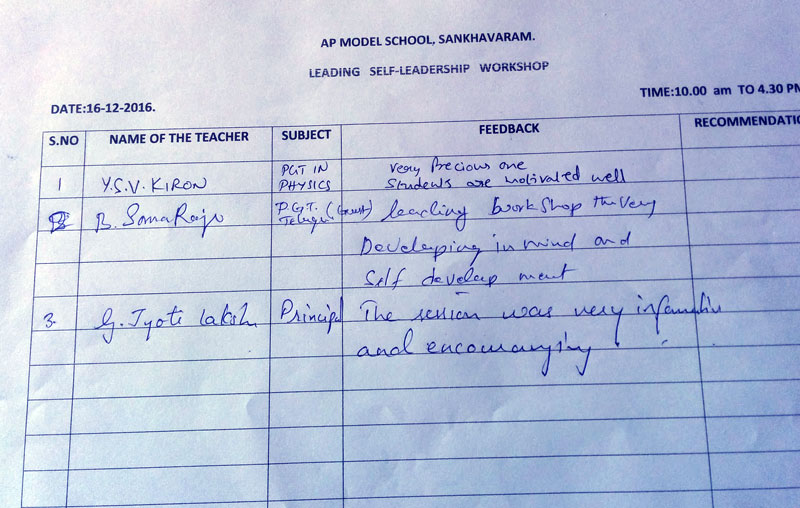 AP MODEL SCHOOL, SANKHAVARAM.
LEADING SELF-LEADERSHIP WORKSHOP
TIME:10.00 am TO 4.30 PM
DATE:16-12-2016.
S.NO NAME OF THE TEACHER SUBJECT FEEDBACK RECOMMENDATIO
1 Y.S.V. KIRON PGT IN PHYSICS Very Precious one
Students are motivated well
2 B. Soma Raju P.G.T. Telugu (Guest) leading workshop the very
Developing in mind and
Self develop ment
3. G. Jyoti Lakshmi Principal The session was very informative
and encouranging